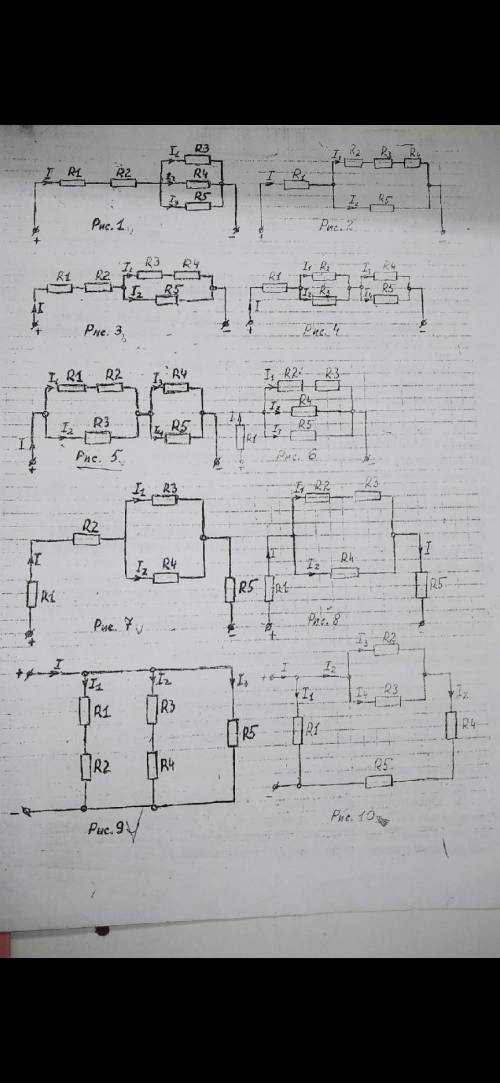 I R1 R2 I₁ R3
I₂ R4
I₃ R5
+ −
Рис. 1
I R1 I₁ R2 R3 R4
R5
+ −
Рис. 2
I R1 R2 I₁ R3 R4
I₂ R5
+ −
Рис. 3
I R1 I₁ R2 I₃ R4
I₂ R3 I₄ R5
+ −
Рис. 4
I I₁ R1 R2 I₃ R4
I₂ R3 I₄ R5
+ −
Рис. 5
I R1 I₁ R2 R3
I₂ R4
I₃ R5
+ −
Рис. 6
I R1 R2 I₁ R3
I₂ R4
R5
+ −
Рис. 7
I R1 I₁ R2 R3
I₂ R4
I R5
+ −
Рис. 8
+ I I₂ I₃
I₁ R1 R3 R5
R2 R4
−
Рис. 9
+ I I₂ I₃ R2
I₁ I₄ R3 I₂
R1 R4
R5
−
Рис. 10